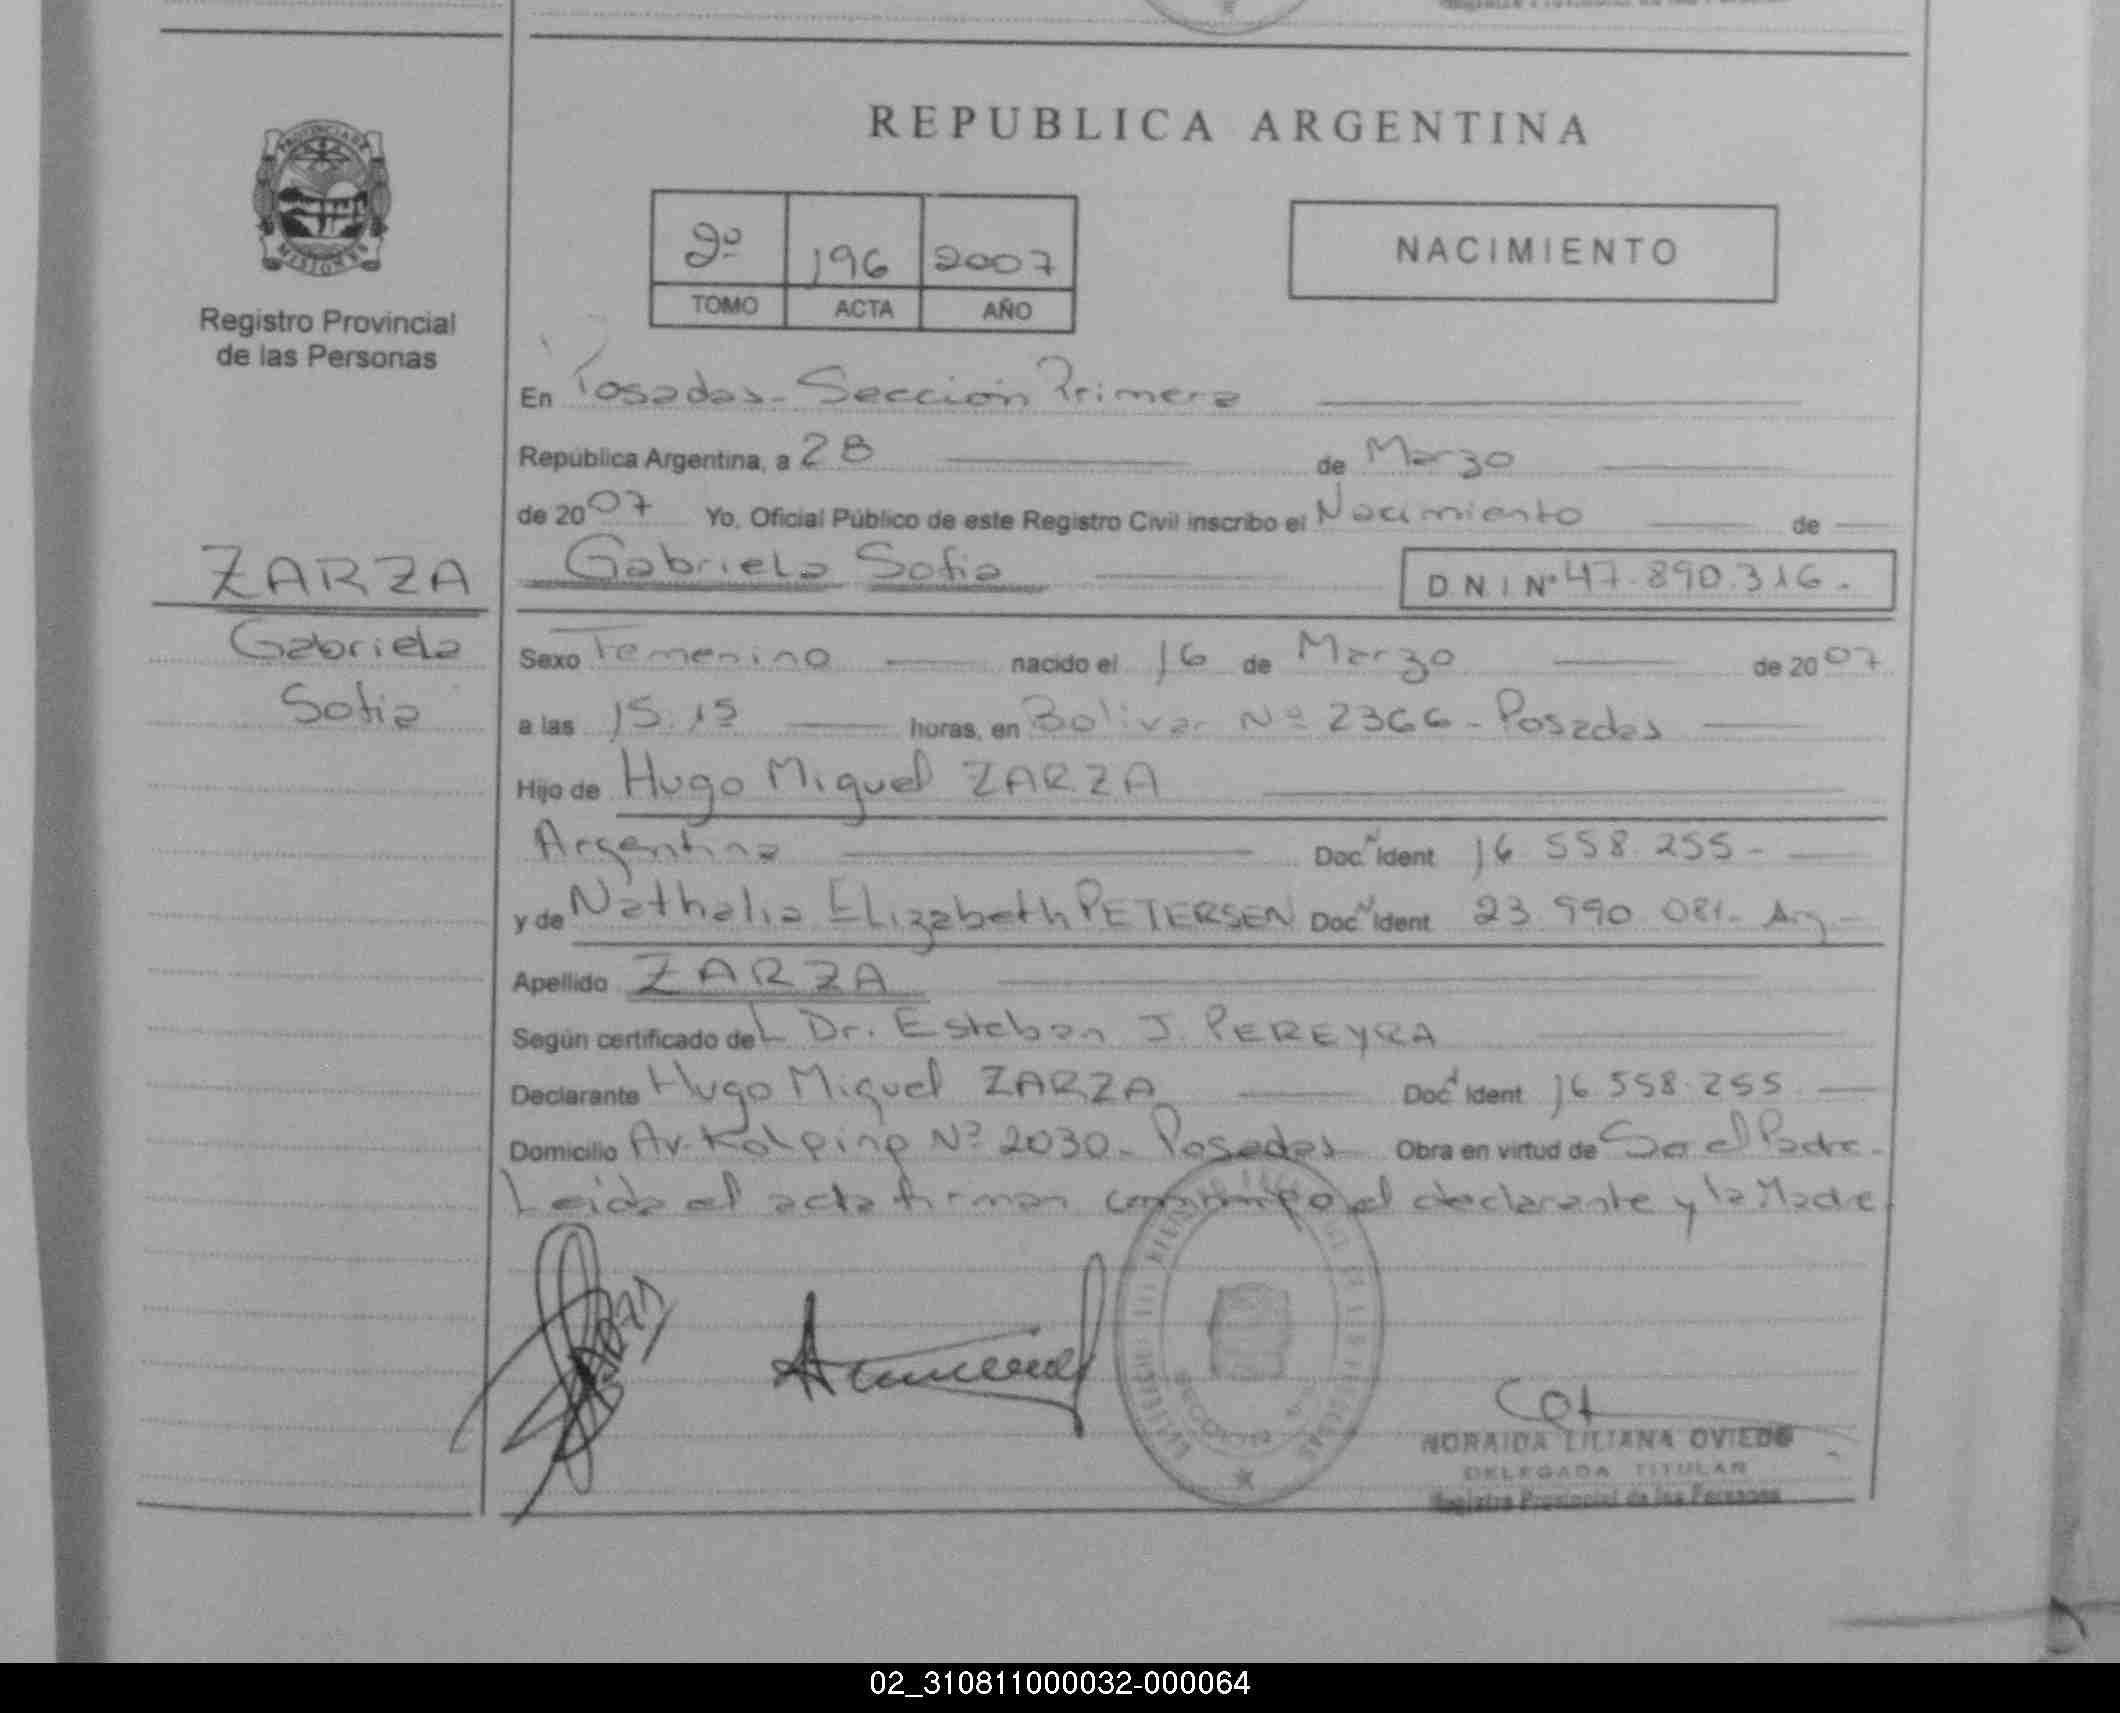 PROVINCIA DE
MISIONES
Registro Provincial
de las Personas
ZARZA
Gabriela
Sofia
REPUBLICA ARGENTINA
2º 196 2007
TOMO ACTA AÑO
NACIMIENTO
En Posadas - Sección Primera
República Argentina, a 28 de Marzo
de 2007 Yo, Oficial Público de este Registro Civil inscribo el Nacimiento de
Gabriela Sofia D N I Nº 47.890.316.
Sexo Femenino nacido el 16 de Marzo de 2007
a las 15.15 horas, en Bolivar Nº 2366 - Posadas
Hijo de Hugo Miguel ZARZA
Argentina Doc. Ident 16.558.255 -
y de Nathalia Elizabeth PETERSEN Doc. Ident 23.990.081 - Arg -
Apellido ZARZA
Según certificado del Dr. Esteban J. PEREYRA
Declarante Hugo Miguel ZARZA Doc. Ident 16.558.255
Domicilio Av. Kolping Nº 2030 - Posadas Obra en virtud de Ser el Padre -
Leida el acta firman conmigo el declarante y la Madre
NORAIDA LILIANA OVIEDO
DELEGADA TITULAR
Registro Provincial de las Personas
02_310811000032-000064